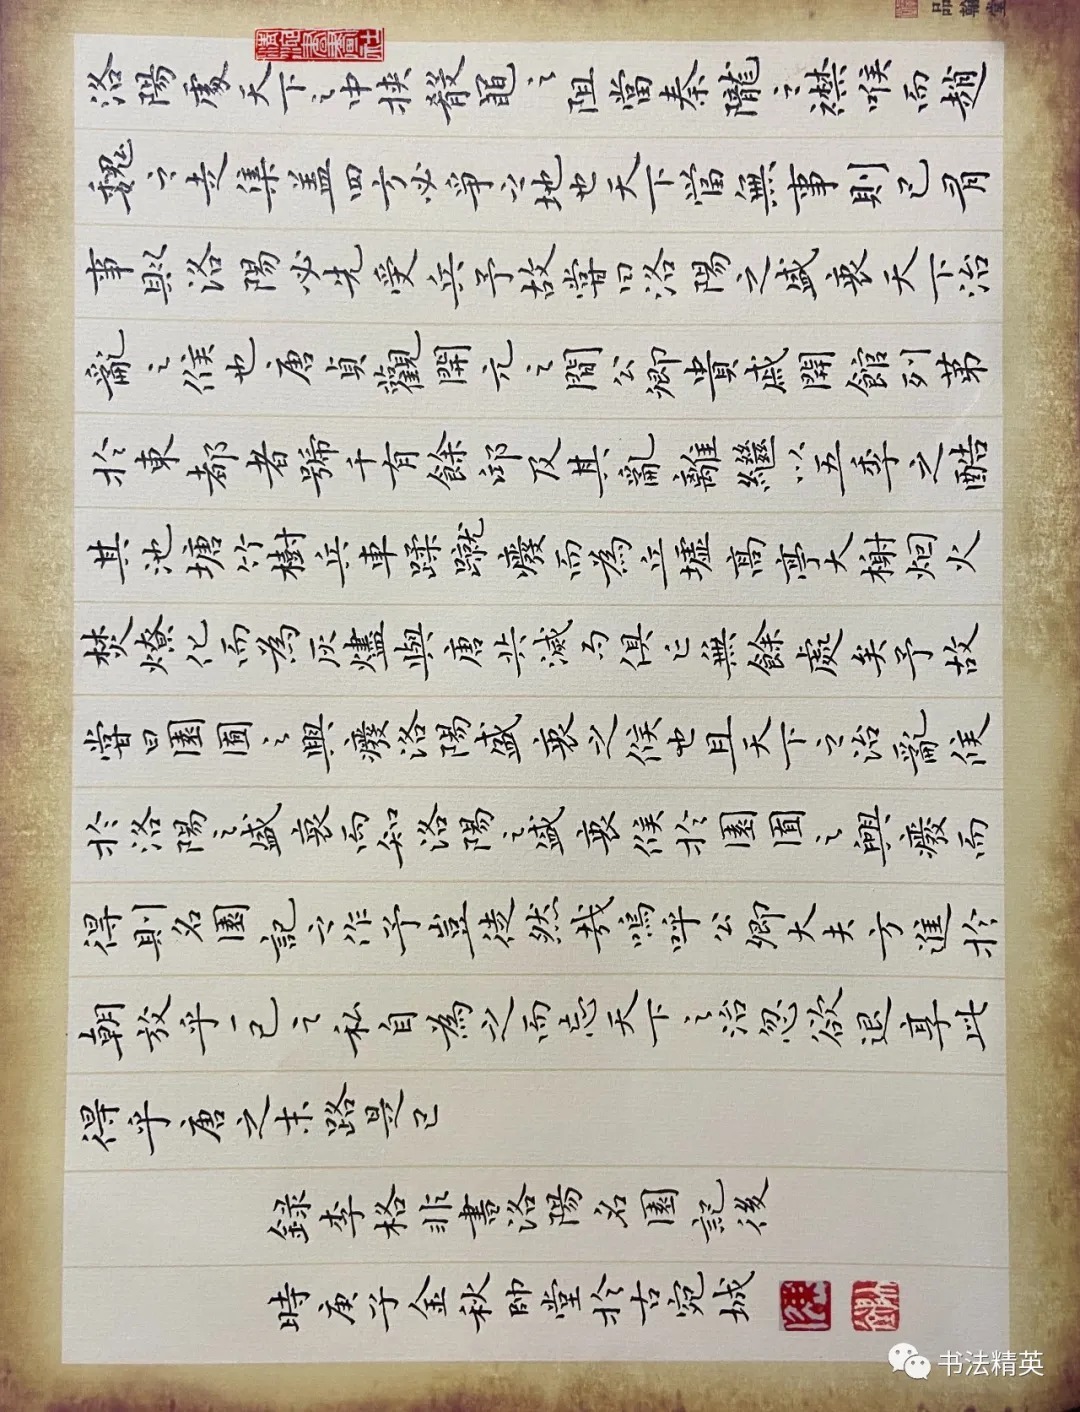 洛陽處天下之中挟殽黽之阻當秦隴之襟喉而趙
魏之走集盖四方必爭之地也天下當無事則已有
事則洛陽必先受兵予故嘗曰洛陽之盛衰天下治
亂之候也唐貞觀開元之間公卿貴戚開館列第
於東都者號千有餘邸及其亂離繼以五季之酷
其池塘竹樹兵車蹂蹴廢而為丘墟高亭大榭烟火
焚燎化而為灰燼與唐共滅而俱亡無餘處矣予故
嘗曰園囿之興廢洛陽盛衰之候也且天下之治亂候
於洛陽之盛衰而知洛陽之盛衰候於園囿之興廢而
得則名園記之作予豈徒然哉嗚呼公卿大夫方進於
朝放乎一己之私自為之而忘天下之治忽欲退享此
得乎唐之末路是已
錄李格非書洛陽名園記後
時庚子金秋帥堂於古宛城
品翰堂
书法精英